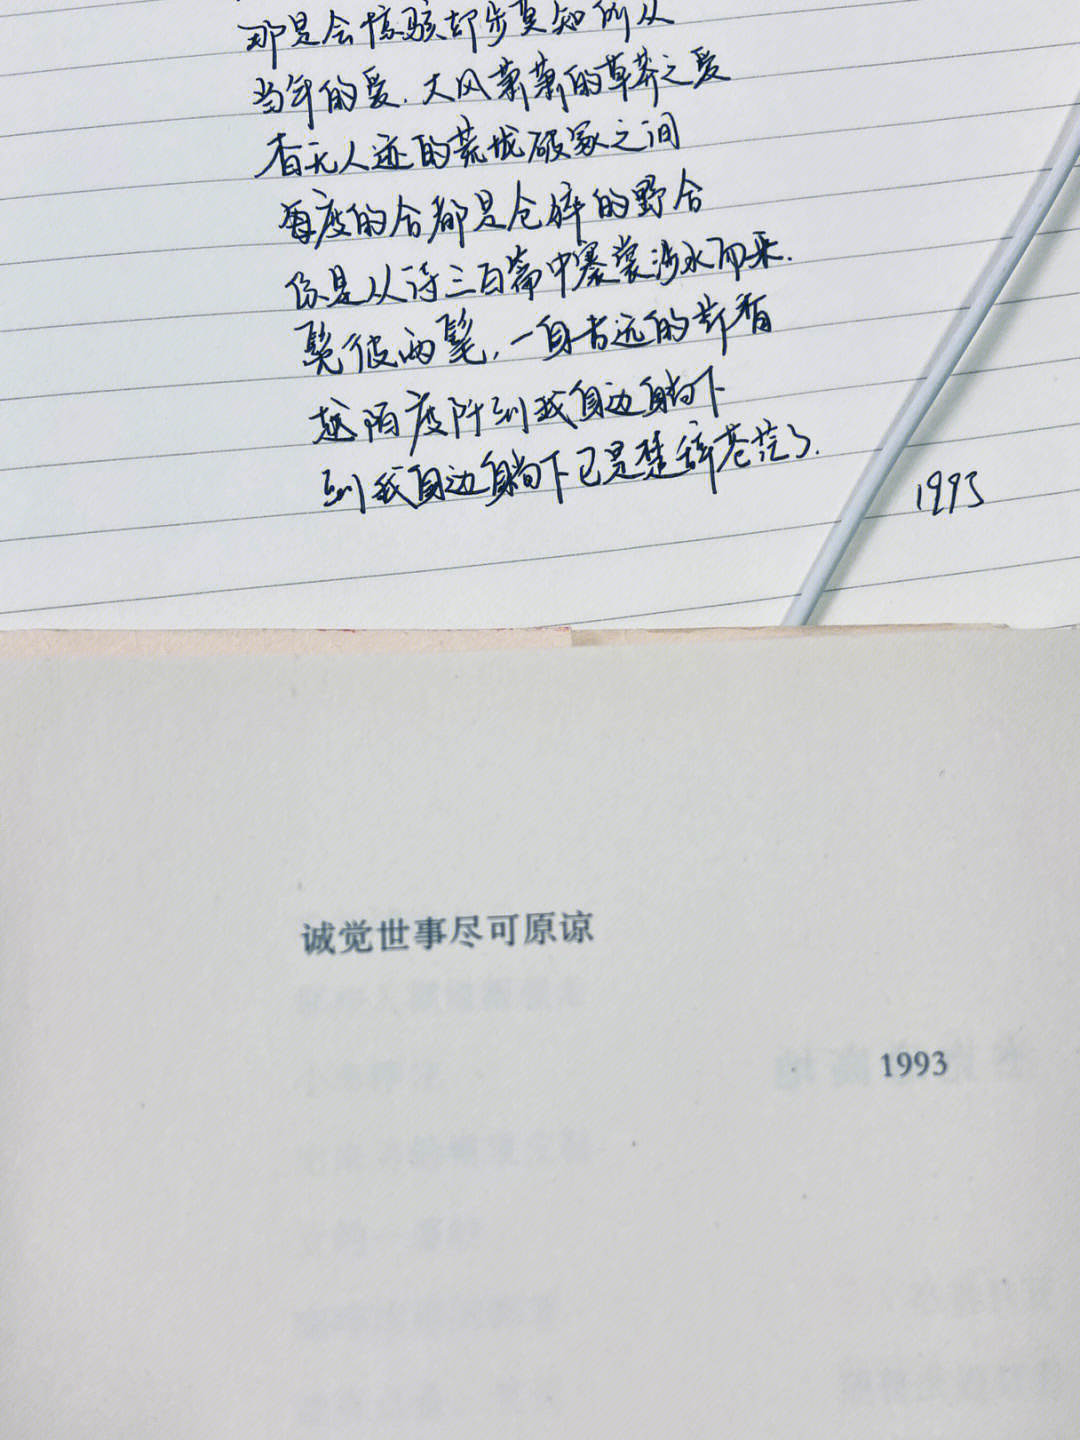 那是会惊骇却步莫知所从
当年的爱，大风萧萧的草莽之爱
杳无人迹的荒垅破冢之间
每度的合都是仓猝的野合
你是从诗三百篇中褰裳涉水而来．
髧彼两髦，一身古远的芹香
越陌度阡到我身边躺下
到我身边躺下已是楚辞苍茫了．
1993
诚觉世事尽可原谅
1993